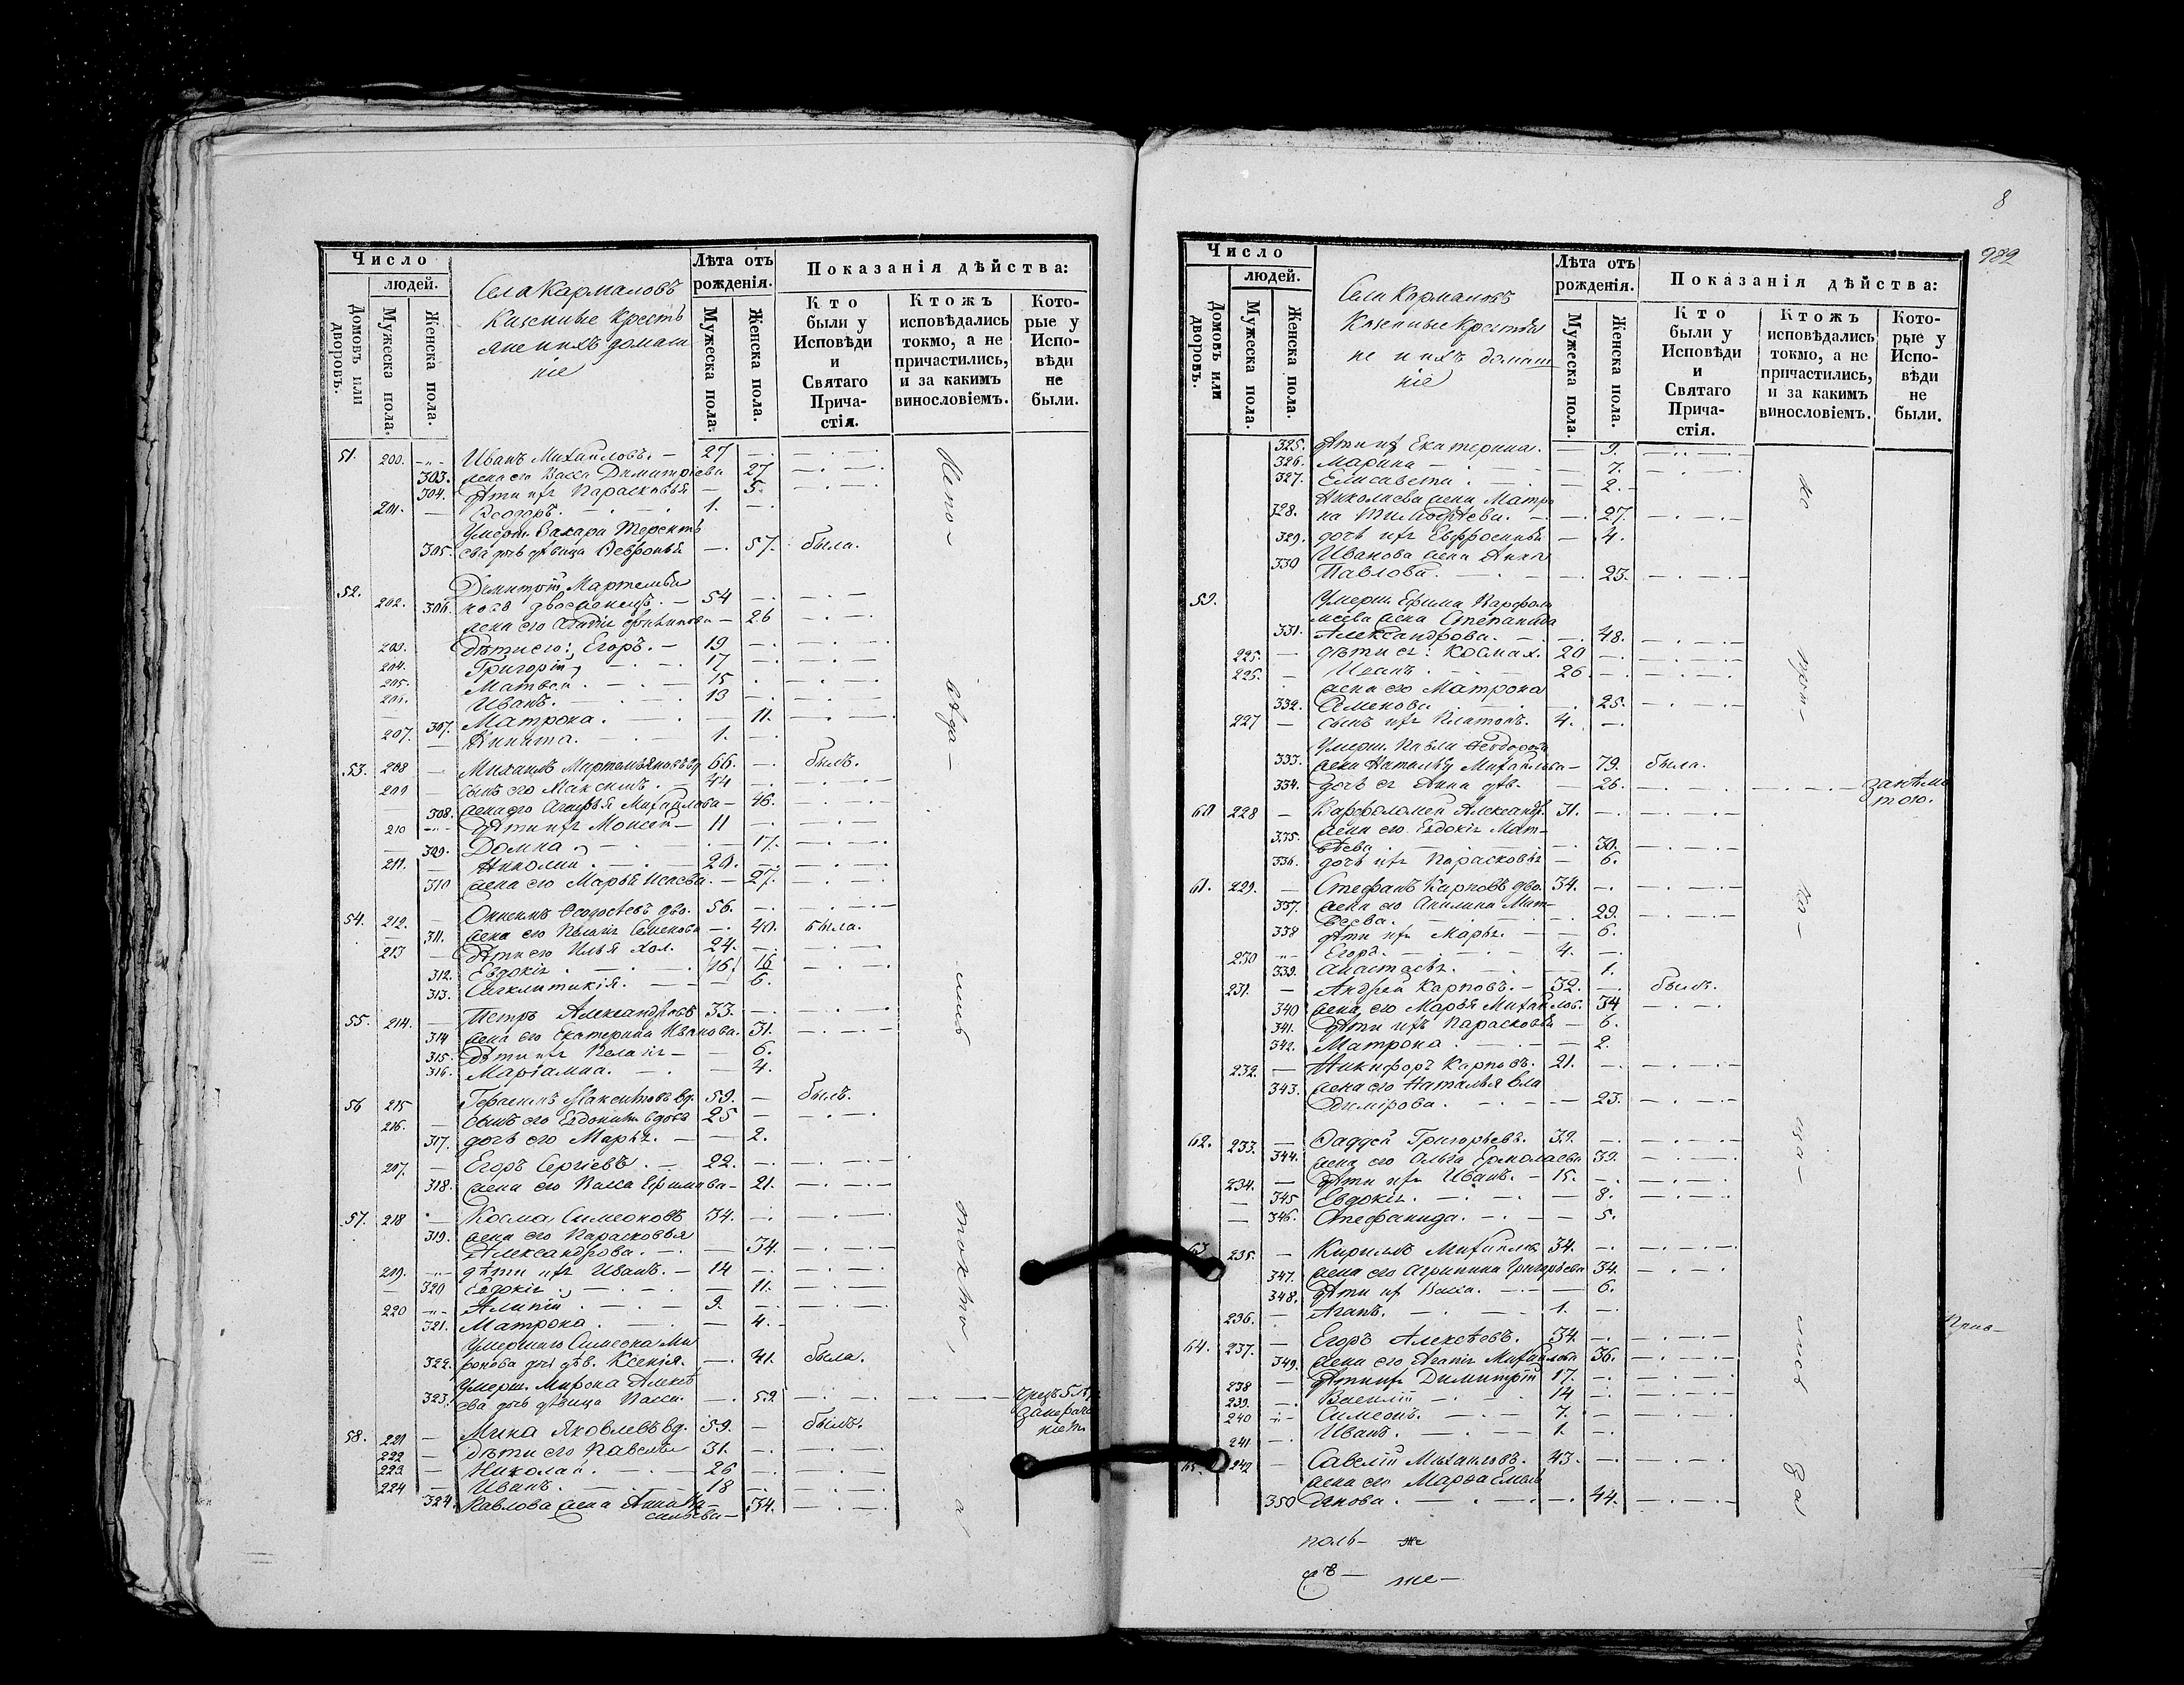 Число
людей.
Домовъ или дворовъ.
Мужеска пола.
Женска пола.
Села Кармаловъ
Казенные кресть
яне и ихъ домаш
ніе
Лѣта отъ рожденія.
Мужеска пола.
Женска пола.
Показанія дѣйства:
Кто были у Исповѣди и Святаго Прича-стія.
Ктожъ исповѣдались токмо, а не причастились, и за какимъ винословіемъ.
Кото-рые у Испо-вѣди не были.
51. 200. Иванъ Михайловъ. — 27
303. жена его Васса Димитріева 27
304. дѣти ихъ Парасковья — 5.
201. — Ѳеодоръ. 1.
Умерш. Захара Теренть
305. ева дочь дѣвица Ѳевронья — 57. была.
52. Димитрій Мартемья
202. новъ двоеженецъ. — 54
306. жена его 26
203. Дѣти его: Егоръ. — 19
204. Григорій 17
205. Матвей 15
206. Иванъ. 13
307. Матрона. — 11.
207. Никита. 1.
53. 208 — Михаилъ Мартемьяновъ вд. 66. — былъ.
209 — сынъ его Максимъ. 44
308. жена его Михайлова — 46.
210 дѣти ихъ Моисей — 11
309. Домна 17.
211. — Николай 20.
310 жена его Марья Исаева. — 27.
54. 212. — Онисимъ Ѳеодосѣевъ дво. 56.
311. жена его Пелагія Семенова — 40. была.
213 — Дѣти его Илья хол. 24.
312. Евдокія 16
313. Сигклитикія. — 6.
55. 214. — Петръ Александровъ 33.
314 жена его Екатерина Иванова. 31.
315. Дѣти ихъ Пелагія — 6.
316. Маріамна. — 4.
56 215 Герасимъ Максимовъ вд. 59. — былъ.
216. — сынъ его Евдокимъ вдовъ 25
317. дочь его Марья. — 2.
217. — Егоръ Сергіевъ. 22.
318. жена его Васса Ефимова — 21.
57. 218 — Косма Симеоновъ 34.
319. жена его Парасковья
Александрова. — 34.
219. дѣти ихъ Иванъ. — 14
320 Евдокія 11.
220 Алипій 9.
321. Матрона. — 4.
Умершаго Симеона Ми
322. ронова дочь дѣв. Ксенія. — 41. была.
Умерш. Мирона Алексѣ
323. ева дочь дѣвица Васса. — 52
58. 221 — Мина Яковлевъ вд. 59. — былъ.
222 — дѣти его Павелъ 31.
223 — Николай. 26
224 — Иванъ. 18
324. Павлова жена Анна Ва
сильева — 34.
Испо-
вѣда-
лись
токмо,
а
8
982
Число
людей.
Домовъ или дворовъ.
Мужеска пола.
Женска пола.
Села Кармаловъ
Казенные крестья
не и ихъ домаш
ніе
Лѣта отъ рожденія.
Мужеска пола.
Женска пола.
Показанія дѣйства:
Кто были у Исповѣди и Святаго Прича-стія.
Ктожъ исповѣдались токмо, а не причастились, и за какимъ винословіемъ.
Кото-рые у Испо-вѣди не были.
325. дѣти их Екатерина. — 9.
326. Марина — 7.
327. Елисавета — 2.
Николаева жена Матро
328. на Тимоѳѣева. — 27.
329. дочь ихъ Евфросинья — 4.
330 Иванова жена Анна
Павлова. 23.
59. Умерш. Ефима Варфоло
меева жена Степанида
331. Александрова. 48.
225. — дѣти ея: Космах. 20
225. — Иванъ 26
жена его Матрона
332. Семенова 25.
227 — сынъ ихъ Платонъ. 4.
Умерш. Павла Ѳеодорова
333. жена Наталья Михайлова — 79. была.
334. дочь ея Анна дѣв. — 26.
60 228 — Варфоломей Александр. 31.
335. жена его Евдокія Мат-
вѣева. 30.
336. дочь ихъ Парасковья — 6.
61. 229. — Стефанъ Карповъ дво. 34.
337. жена его Акилина Мат-
вѣева. 29.
338 дѣти ихъ Марья. — 6.
230 Егоръ. 4.
339. Анастасія. 1.
231. — Андрей Карповъ. — 32. былъ.
340 жена его Марья Михайлов. 34
341. Дѣти ихъ Параскевья — 6.
342. Матрона. — 2.
232. — Никифоръ Карповъ. 21.
343. жена его Наталья Вла
димірова. 23.
62. 233. — Ѳаддей Григорьевъ. 39.
344. жена его Ольга Ермолаева 39.
234. — Дѣти ихъ Иванъ. — 15.
345 Евдокія. — 8.
346. Стефанида. — 5.
63. 235. — Кирилъ Михайлов. 34.
347. жена его Агрипина Григорьева 34.
348. Дѣти их Васса. — 6.
236. — Агапъ. 1.
64. 237. — Егоръ Алексѣевъ. 34.
349. жена его Агапія Михайлова 36.
238 — Дѣти ихъ Димитрій 17.
239. — Василій 14
240 Симеонъ. 7.
241 — Иванъ. 1.
65. 242 — Савелій Михайловъ. 43.
жена его Марѳа Емель
350 янова. 44.
не
при-
ча-
ща-
лись
за
поль- же
Съ — же —